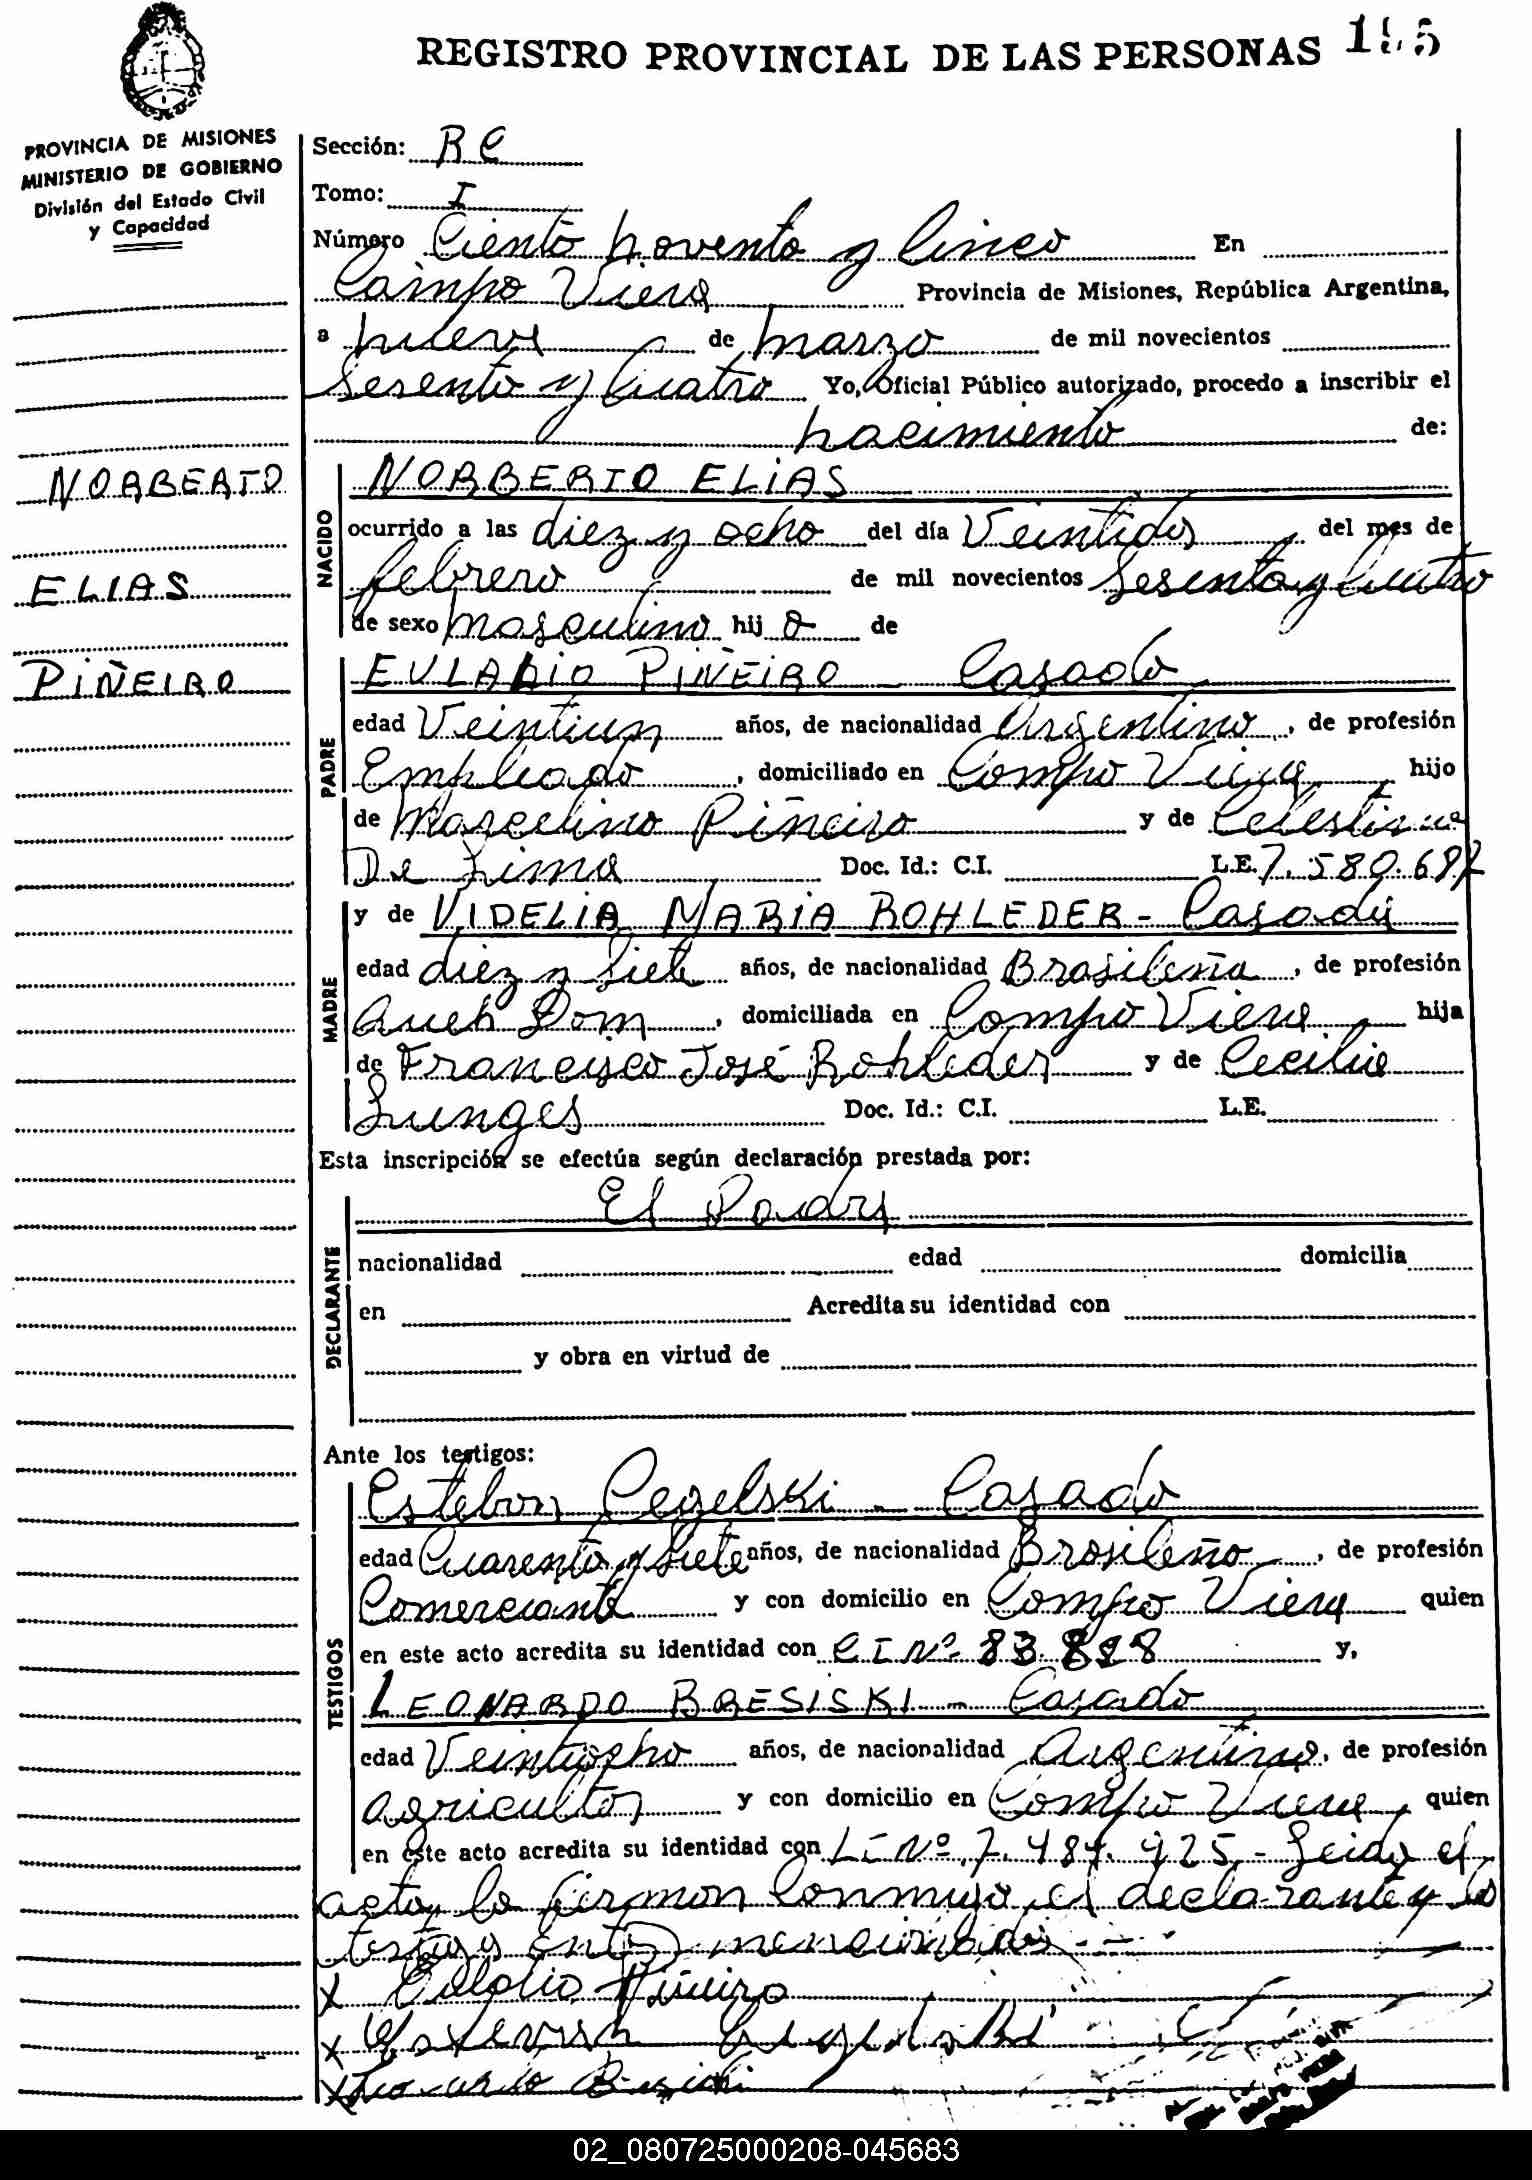 REGISTRO PROVINCIAL DE LAS PERSONAS 195
PROVINCIA DE MISIONES
MINISTERIO DE GOBIERNO
División del Estado Civil
y Capacidad
NORBERTO
ELIAS
PIÑEIRO
Sección: R C
Tomo: I
Número Ciento noventa y Cinco En
Campo Viera Provincia de Misiones, República Argentina,
a nueve de marzo de mil novecientos
Sesenta y Cuatro Yo, Oficial Público autorizado, procedo a inscribir el
nacimiento de:
NACIDO
NORBERTO ELIAS
ocurrido a las diez y ocho del día Veintidos del mes de
febrero de mil novecientos Sesenta y Cuatro
de sexo masculino hij o de
PADRE
EULALIO PIÑEIRO - Casado
edad Veintiun años, de nacionalidad Argentino, de profesión
Empleado, domiciliado en Campo Viera hijo
de Marcelino Piñeiro y de Celestina
De Lima Doc. Id.: C.I. L.E. 7.580.682
MADRE
y de VIDELIA MARIA ROHLEDER - Casada
edad diez y siete años, de nacionalidad Brasileña, de profesión
Queh Dom, domiciliada en Campo Viera hija
de Francisco José Rohleder y de Cecilia
Lunges Doc. Id.: C.I. L.E.
Esta inscripción se efectúa según declaración prestada por:
DECLARANTE
El Padre
nacionalidad edad domicilia
en Acredita su identidad con
y obra en virtud de
Ante los testigos:
TESTIGOS
Esteban Cegelski - Casado
edad Cuarenta y Siete años, de nacionalidad Brasileño, de profesión
Comerciante y con domicilio en Campo Viera quien
en este acto acredita su identidad con C I Nº 83.828 y,
LEONARDO BRESISKI - Casado
edad Veintiocho años, de nacionalidad Argentino, de profesión
agricultor y con domicilio en Campo Viera, quien
en este acto acredita su identidad con L E Nº 7.484.925 - Leida el
acta, la firman Conmigo, el declarante y los
testigos antes mencionados
x Eulalio Piñeiro
x
x Leonardo
02_080725000208-045683